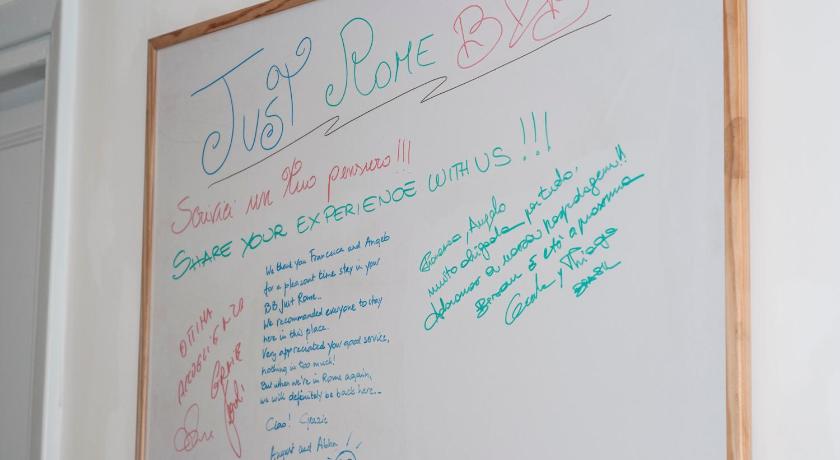 JUST ROME B&B
Scrivici un tuo pensiero!!!
SHARE YOUR EXPERIENCE WITH US!!!
We thank you Francesca and Angelo
for a pleasant time stay in your
BB Just Rome...
We recommended everyone to stay
here in this place.
Very appreciated your good service,
nothing in too much!
But when we're in Rome again,
we will definitely be back here...
Ciao! Grazie
August and
OTTIMA
ACCOGLIENZA
GRAZIE
Angelo
muito obrigada por tudo.
Adoramos a nossa hospedagem!!
e até a próxima
y Thiago
BRASIL